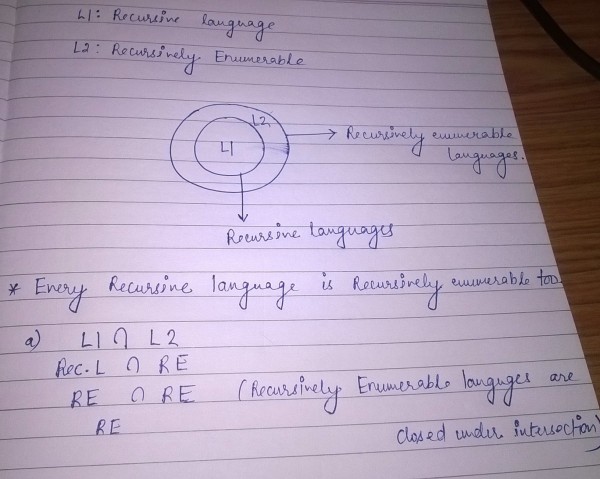 L1: Recursive language
L2: Recursively Enumerable
L2
L1
Recursively enumerable
languages.
Recursive languages
* Every Recursive language is Recursively enumerable too.
a) L1 ∩ L2
Rec. L ∩ RE
RE ∩ RE (Recursively Enumerable languges are
RE closed under intersection)